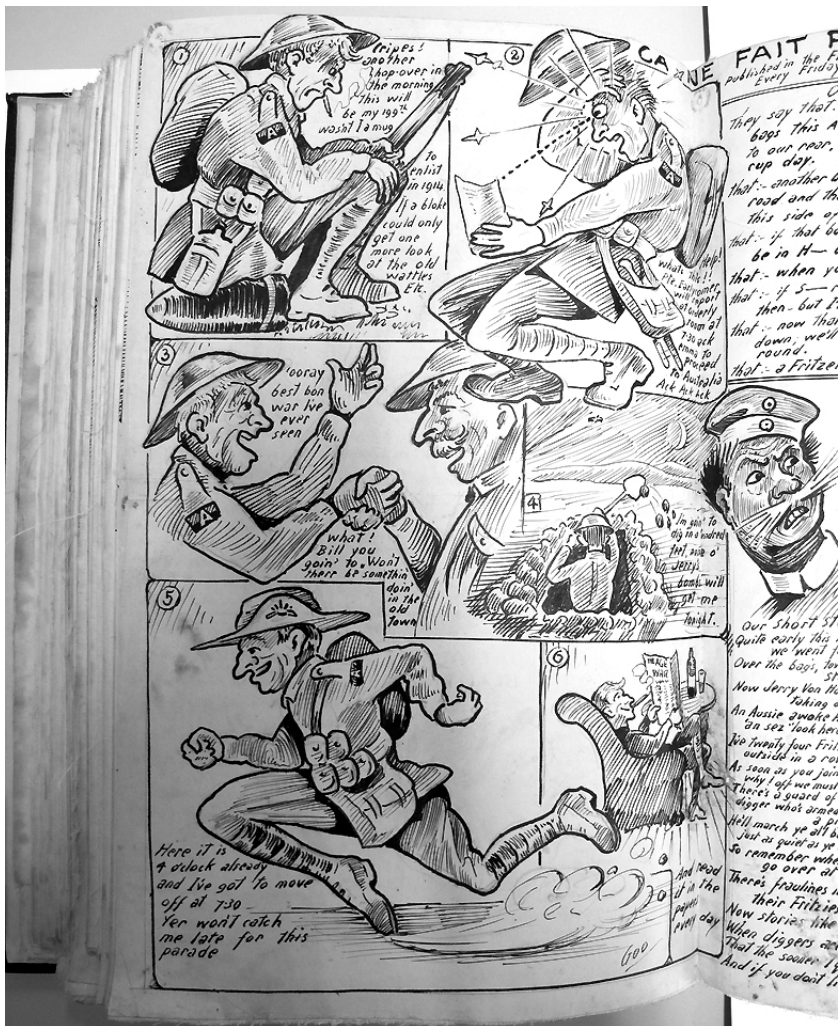 1
Cripes!
another
hop-over in
the morning
this will
be my 199th
wasn't I a mug
to
enlist
in 1914
If a bloke
could only
get one
more look
at the old
wattles
Etc.
A
2
Help!
whats this!!
will report
at orderly
room at
7.30 ack
emma to
proceed
to Australia
Ack Ack Ack
3
'ooray
best bon
war I've
ever
seen
A
what!
Bill you
goin' to. Won't
there be somethin'
doin'
in the
old
town
4
I'm goin' to
dig in
feet, none o'
Jerry's
bombs will
get me
tonight.
5
Here it is
4 o'clock already
and I've got to move
off at 730
Yer won't catch
me late for this
parade
6
WAR
And read
it in the
papers
every day
GOO
CA NE FAIT
published in the
Every Friday
They say that
bags this
to our rear.
cup day.
that:- another
road and
this side
that:- if that
be in H—
that:- when
that:- if S—
then - but
that:- now
down, we'll
round.
that:- a Fritzer
Our Short
Quite early this
we went
Over the bags,
Now Jerry Von
Taking
An Aussie awoke
an sez "look here
I've twenty four
outside in a
As soon as you
why! off we must
There's a guard of
digger who's armed
He'll march ye all
just as quiet as ye
So remember
go over
There's fraulines
their Fritzies
Now stories like
When diggers
That the sooner
And if you don't